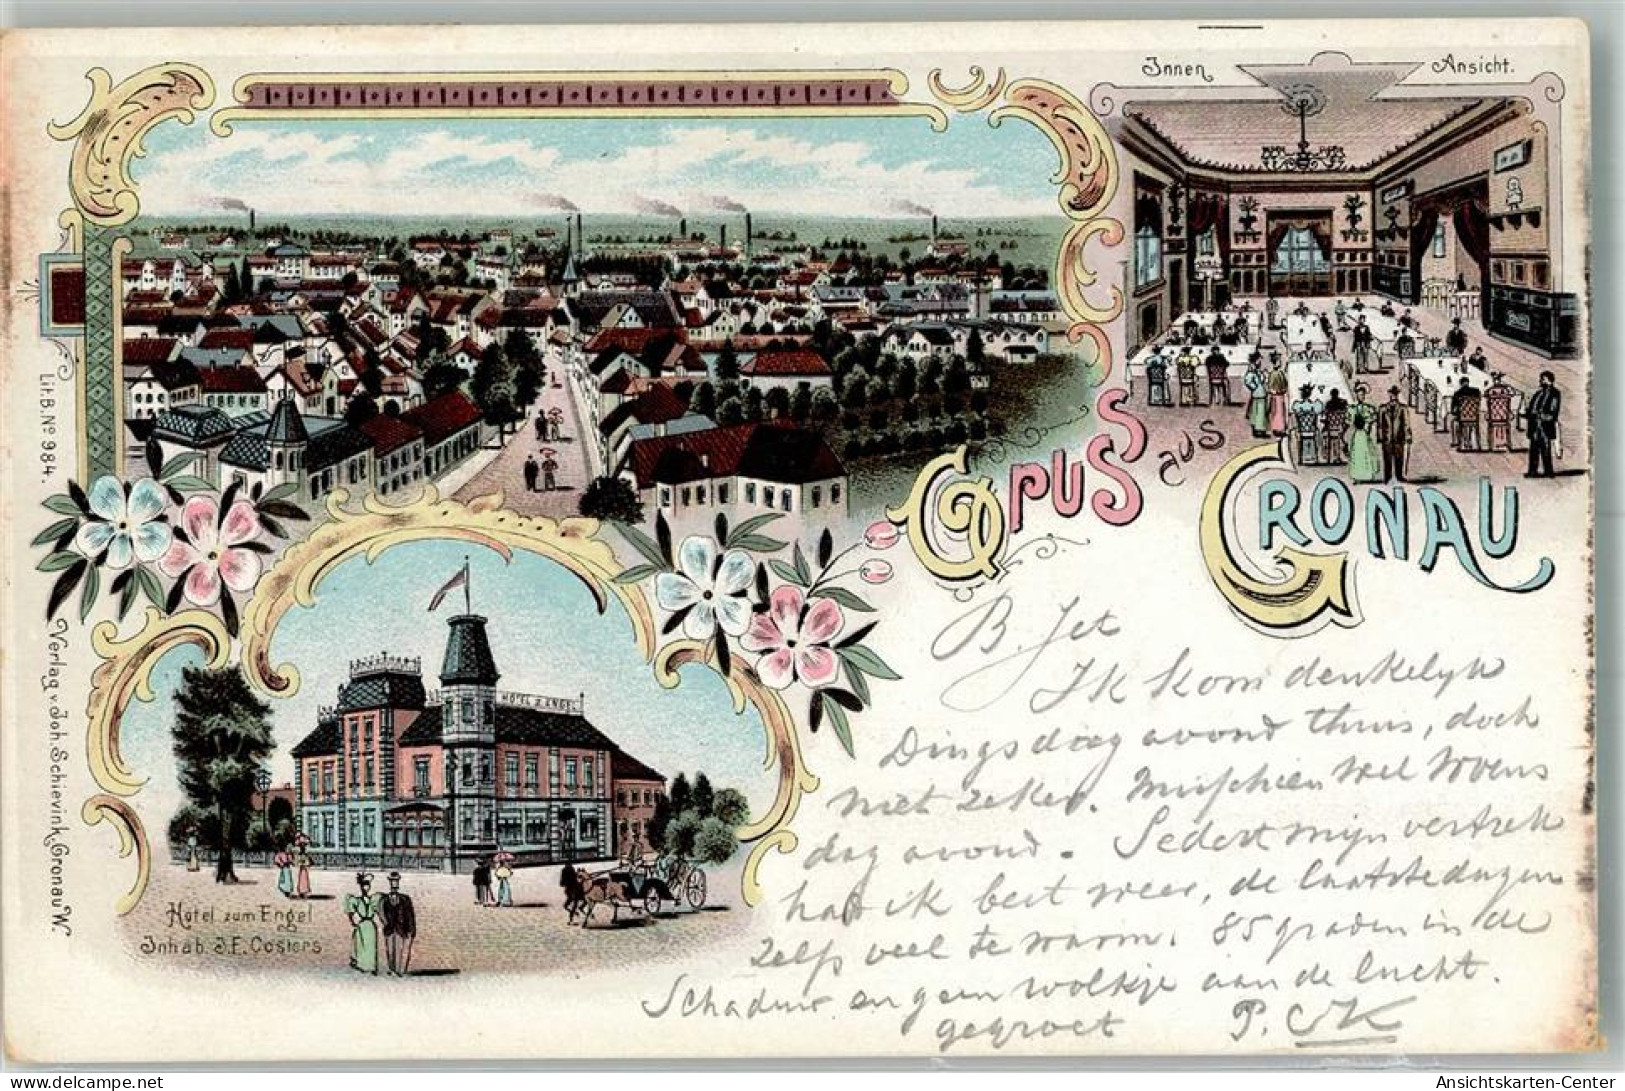 Innen Ansicht.
Gruss aus
Gronau
Lit. B. No 984.
Verlag v. Joh. Schievink, Gronau W.
HOTEL Z. ENGEL
Hotel zum Engel
Inhab. J.F. Costers
B. Jet
Ik kom denkelyk
Dingsdag avond thuis, doch
niet zeker. Misschien wel Woens
dag avond. Sedert mijn vertrek
had ik best weer, de laatste dagen
zelfs veel te warm. 85 graden in de
Schaduw en geen wolkje aan de lucht.
gegroet P.
AnsichtsKarten-Center